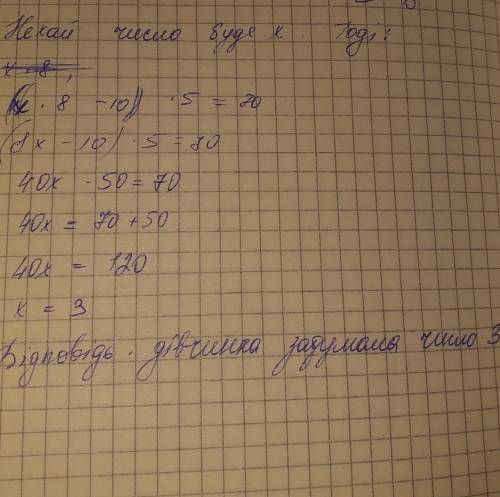 Нехай число буде x. Тоді:
(x · 8 - 10) · 5 = 70
(8x - 10) · 5 = 70
40x - 50 = 70
40x = 70 + 50
40x = 120
x = 3
Відповідь. дівчинка задумала число 3